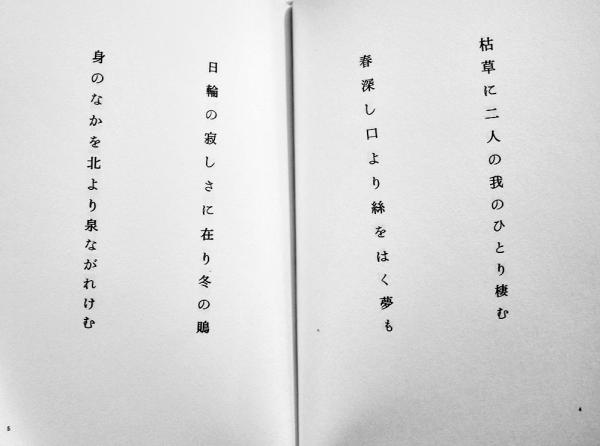 枯草に二人の我のひとり棲む
春深し口より絲をはく夢も
4
日輪の寂しさに在り冬の鵙
身のなかを北より泉ながれけむ
5